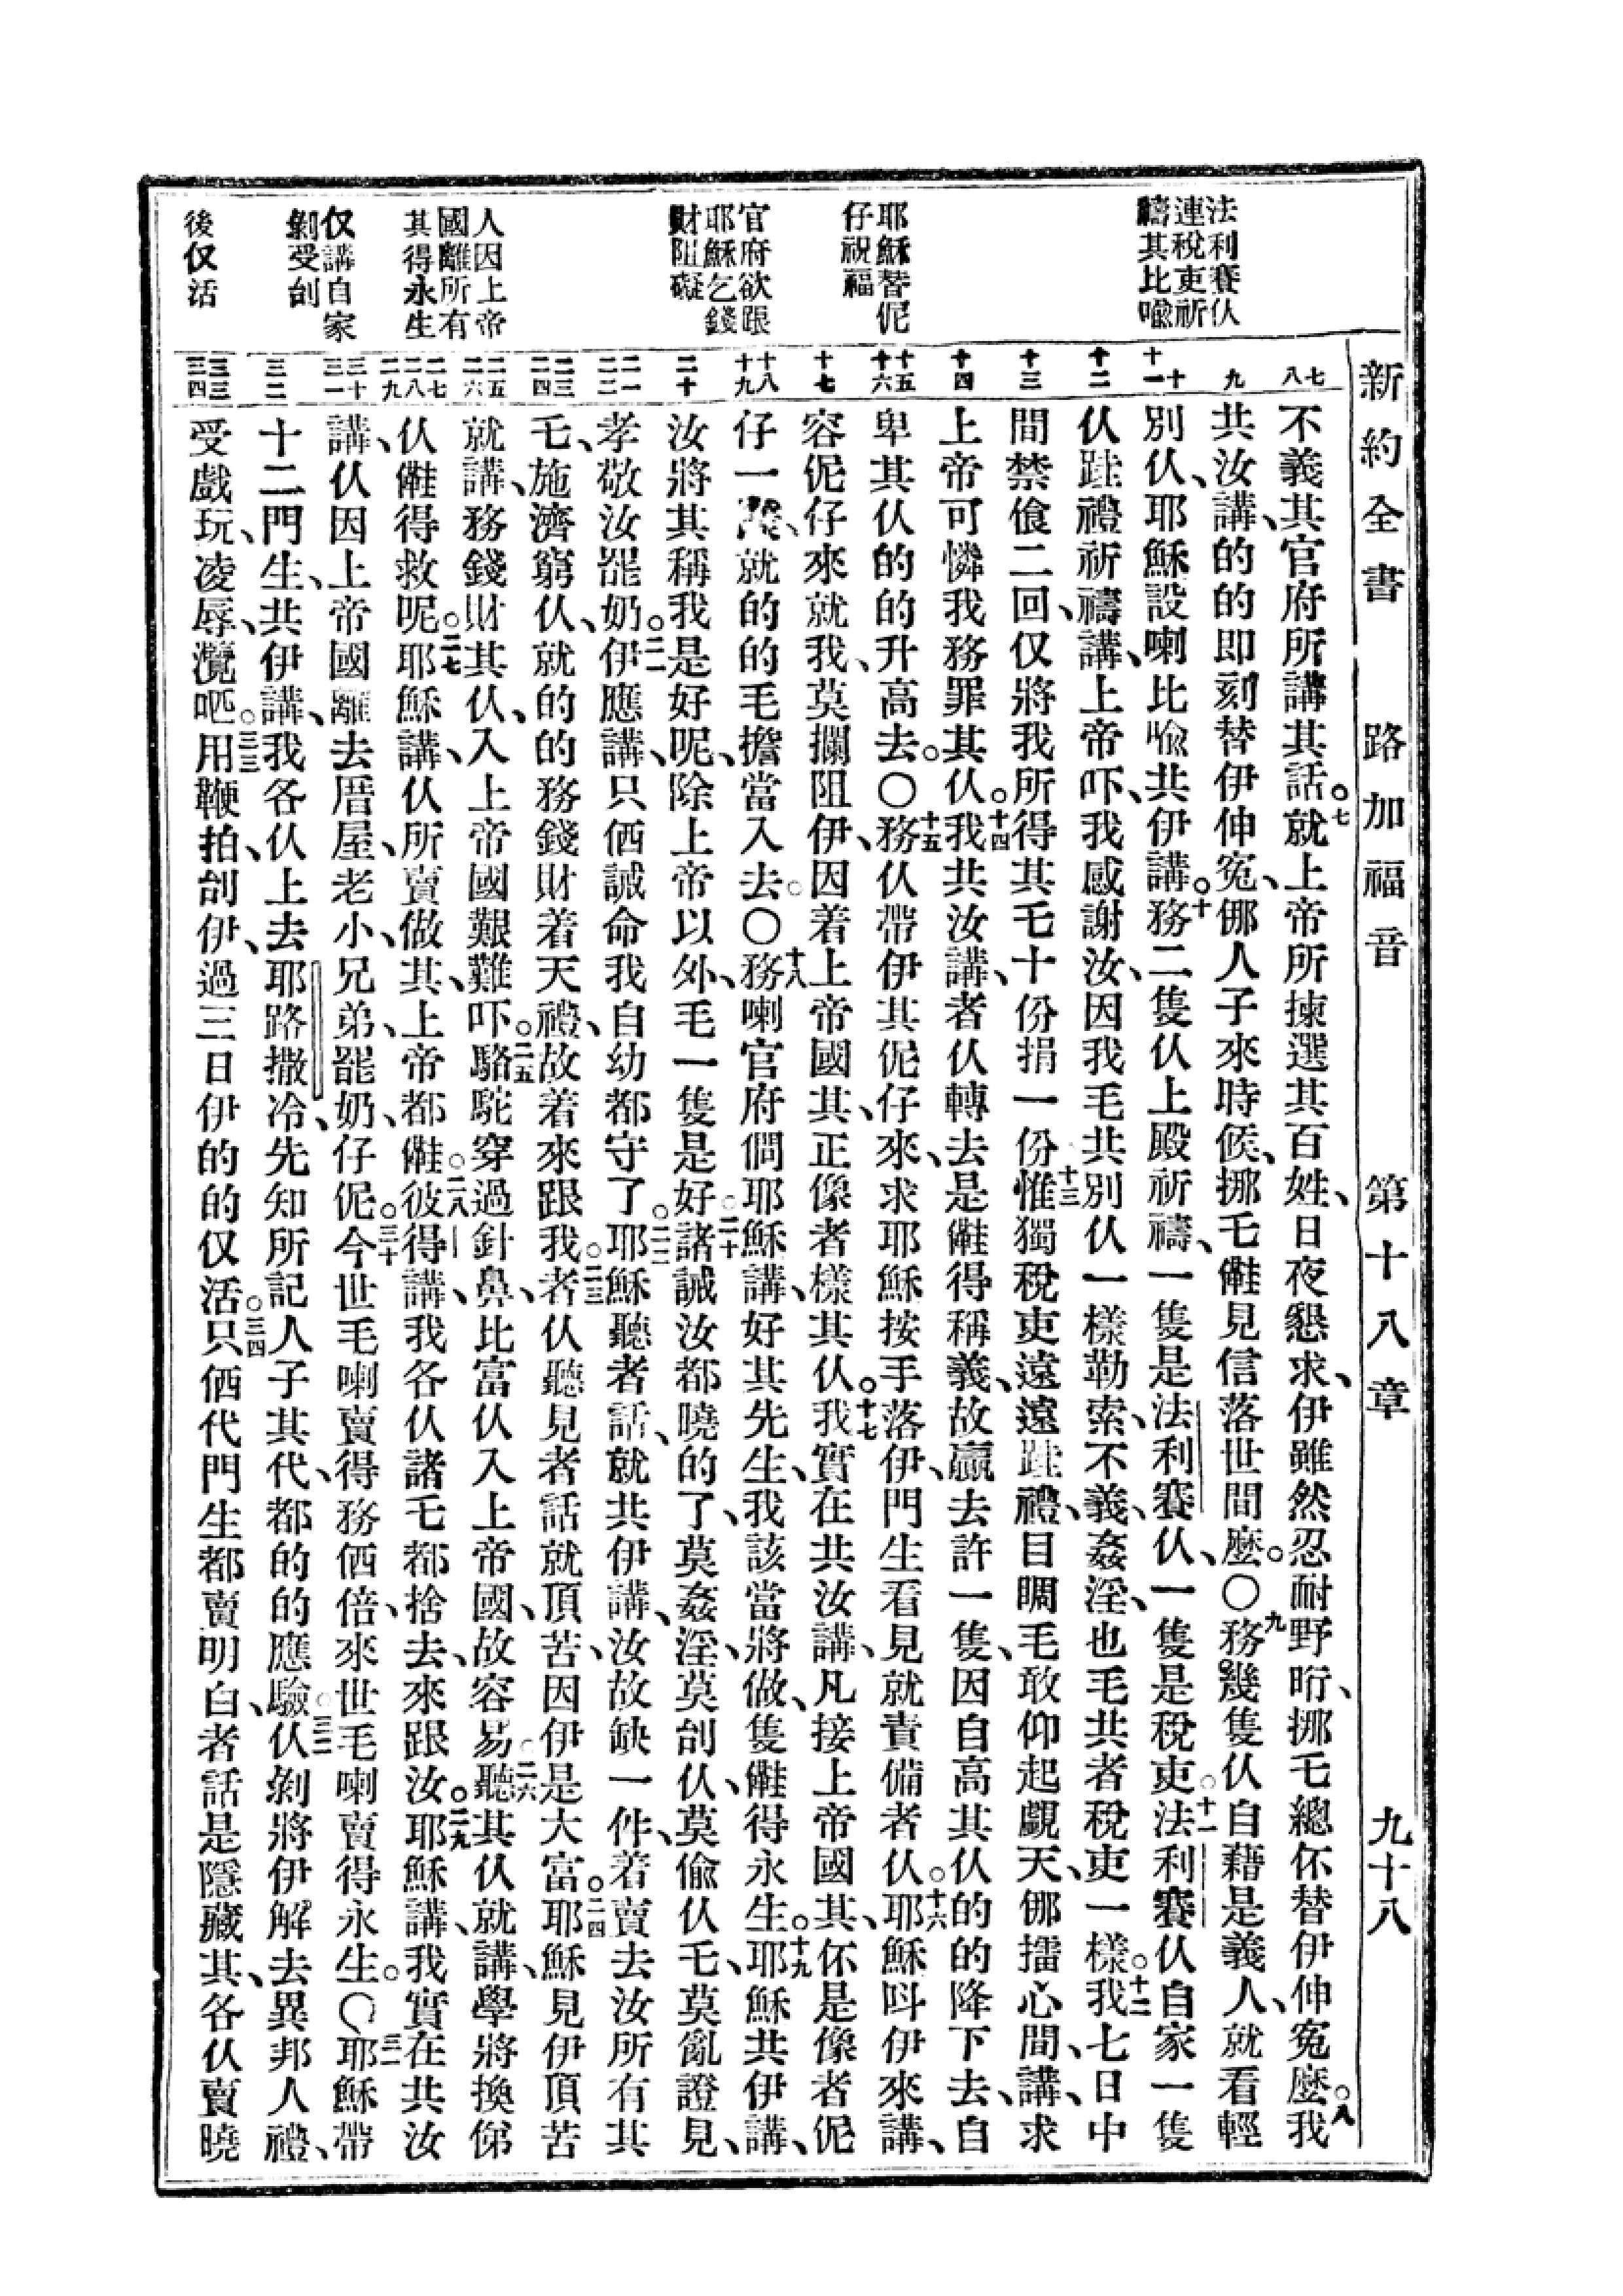 新約全書 路加福音 第十八章 九十八
法利賽仸
連稅吏祈
禱其比喻
耶穌替伲
仔祝福
官府欲跟
耶穌乞錢
財阻礙
人因上帝
國離所有
其得永生
仅講自家
剝受刣
後仅活
七
八
九
十
十一
十二
十三
十四
十五
十六
十七
十八
十九
二十
二一
二二
二三
二四
二五
二六
二七
二八
二九
三十
三一
三二
三三
三四
不義其官府所講其話。七就上帝所揀選其百姓、日夜懇求、伊雖然忍耐野晍、挪毛總伓替伊伸寃麼。八我
共汝講、的的即刻替伊伸寃、㑚人子來時候、挪毛㒕見信落世間麼。〇九務幾隻仸自藉是義人、就看輕
別仸、耶穌設喇比喻共伊講。十務二隻仸上殿祈禱、一隻是法利賽仸、一隻是稅吏。十一法利賽仸自家一隻
仸跍禮祈禱講、上帝吓、我感謝汝、因我毛共別仸一樣勒索、不義、姦淫、也毛共者稅吏一樣。十二我七日中
間禁飡二回、仅將我所得其乇十份捐一份。十三惟獨稅吏遠遠跍禮、目睭毛敢仰起覷天、㑚擂心間、講、求
上帝可憐我務罪其仸。十四我共汝講、者仸轉去是㒕得稱義、故贏去許一隻、因自高其仸的的降下去、自
卑其仸的的升高去。〇十五務仸帶伊其伲仔來、求耶穌按手落伊、門生看見就責備者仸。十六耶穌呌伊來講、
容伲仔來就我、莫攔阻伊、因着上帝國其、正像者樣其仸。十七我實在共汝講、凡接上帝國其、伓是像者伲
仔一樣、就的的毛擔當入去。〇十八務喇官府問耶穌講、好其先生、我該當將做、隻㒕得永生。十九耶穌共伊講、
汝將其稱我是好呢、除上帝以外、毛一隻是好。二十諸誡汝都曉的了、莫姦淫、莫刣仸、莫偷仸乇、莫亂證見、
孝敬汝罷奶。二一伊應講、只倆誡命我自幼都守了。二二耶穌聽者話、就共伊講、汝故缺一件、着賣去汝所有其
乇、施濟窮仸、就的的務錢財着天禮、故着來跟我。二三者仸聽見者話就頂苦、因伊是大富。二四耶穌見伊頂苦
就講、務錢財其仸、入上帝國艱難吓。二五駱駝穿過針鼻、比富仸入上帝國、故容易。二六聽其仸就講、學將換㑚
仸㒕得救呢。二七耶穌講、仸所賣做其、上帝都㒕。二八彼得講、我各仸諸乇都捨去、來跟汝。二九耶穌講、我實在共汝
講、仸因上帝國離去厝屋、老小、兄弟、罷奶、仔伲。三十今世毛喇賣得務倆倍、來世毛喇賣得永生。〇三一耶穌帶
十二門生、共伊講、我各仸上去耶路撒冷、先知所記人子其代、都的的應驗。三二仸剝將伊解去異邦人禮、
受戲玩、凌辱、灠𠯗。三三用鞭拍、刣伊、過三日伊的的仅活。三四只倆代門生都賣明白、者話是隱藏其、各仸賣曉